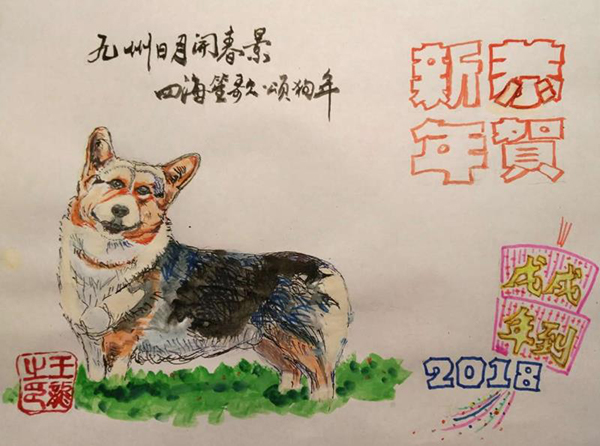 九州日月開春景
四海笙歌頌狗年
恭賀
新年
戊戌
年到
2018
王龍
之印